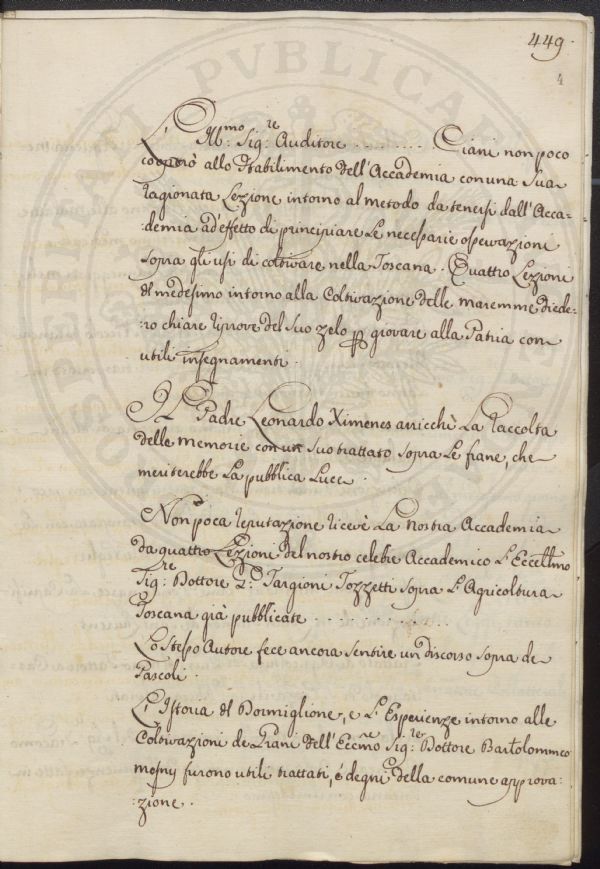 449.
4
L'Ill:mo Sig:re Auditore ......... Ciani non poco
cooperò allo Stabilimento dell'Accademia con una Sua
ragionata Lezione intorno al metodo da tenersi dall'Acca=
:demia ad'effetto di principiare Le necessarie osservazioni
sopra gli usi di coltivare nella Toscana. Quattro Lezioni
del medesimo intorno alla Coltivazione delle maremme diede=
:ro chiare riprove del Suo zelo per giovare alla Patria con
utili insegnamenti.
Il Padre Leonardo Ximenes arricchì La Raccolta
delle memorie con un Suo trattato sopra Le frane, che
meriterebbe La pubblica Luce.
Non poca reputazione ricevè La Nostra Accademia
da quattro Lezioni del nostro celebre Accademico L'Eccell:mo
Sig:re Dottore Targioni Tozzetti sopra L'Agricoltura
Toscana già pubblicate ...............
Lo Stesso Autore fece ancora sentire un discorso sopra de
Pascoli.
L'Istoria del Dormiglione, e L'Esperienze intorno alle
Coltivazioni de Grani dell'Eccmo Sig:re Dottore Bartolommeo
mesny furono utili trattati, e degni della comune approva:
:zione.
PROSPERITATI PVBLICAE